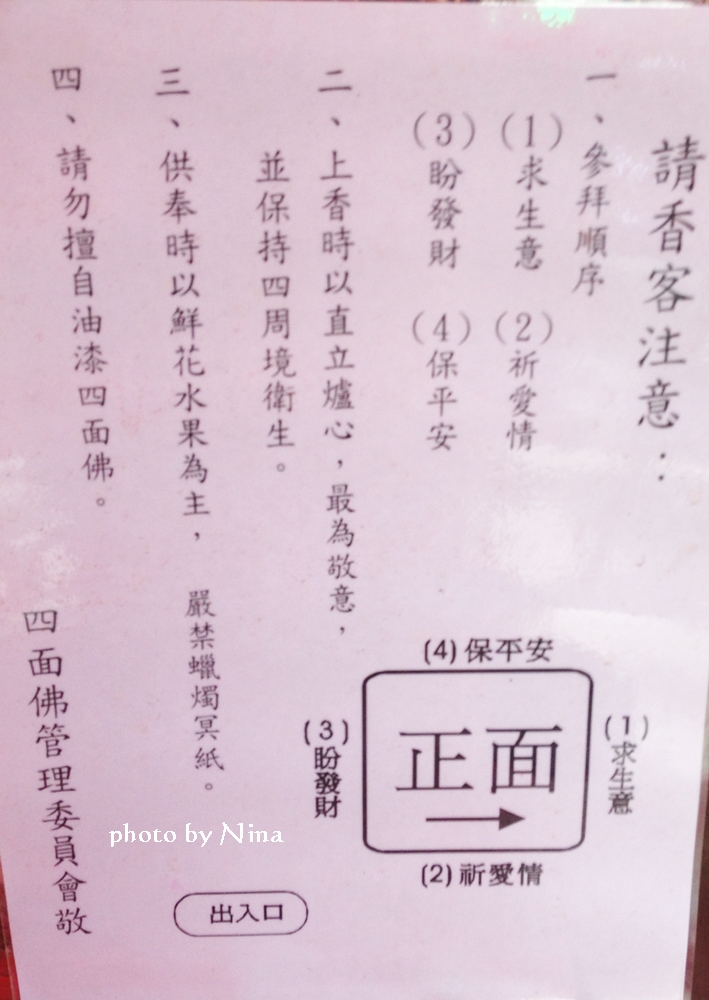 請香客注意：
一、參拜順序
(1)求生意 (2)祈愛情
(3)盼發財 (4)保平安
二、上香時以直立爐心，最為敬意，
並保持四周境衛生。
三、供奉時以鮮花水果為主， 嚴禁蠟燭冥紙。
四、請勿擅自油漆四面佛。
四面佛管理委員會敬
(4)保平安
(1)求生意
正面
(3)盼發財
(2)祈愛情
出入口
photo by Nina